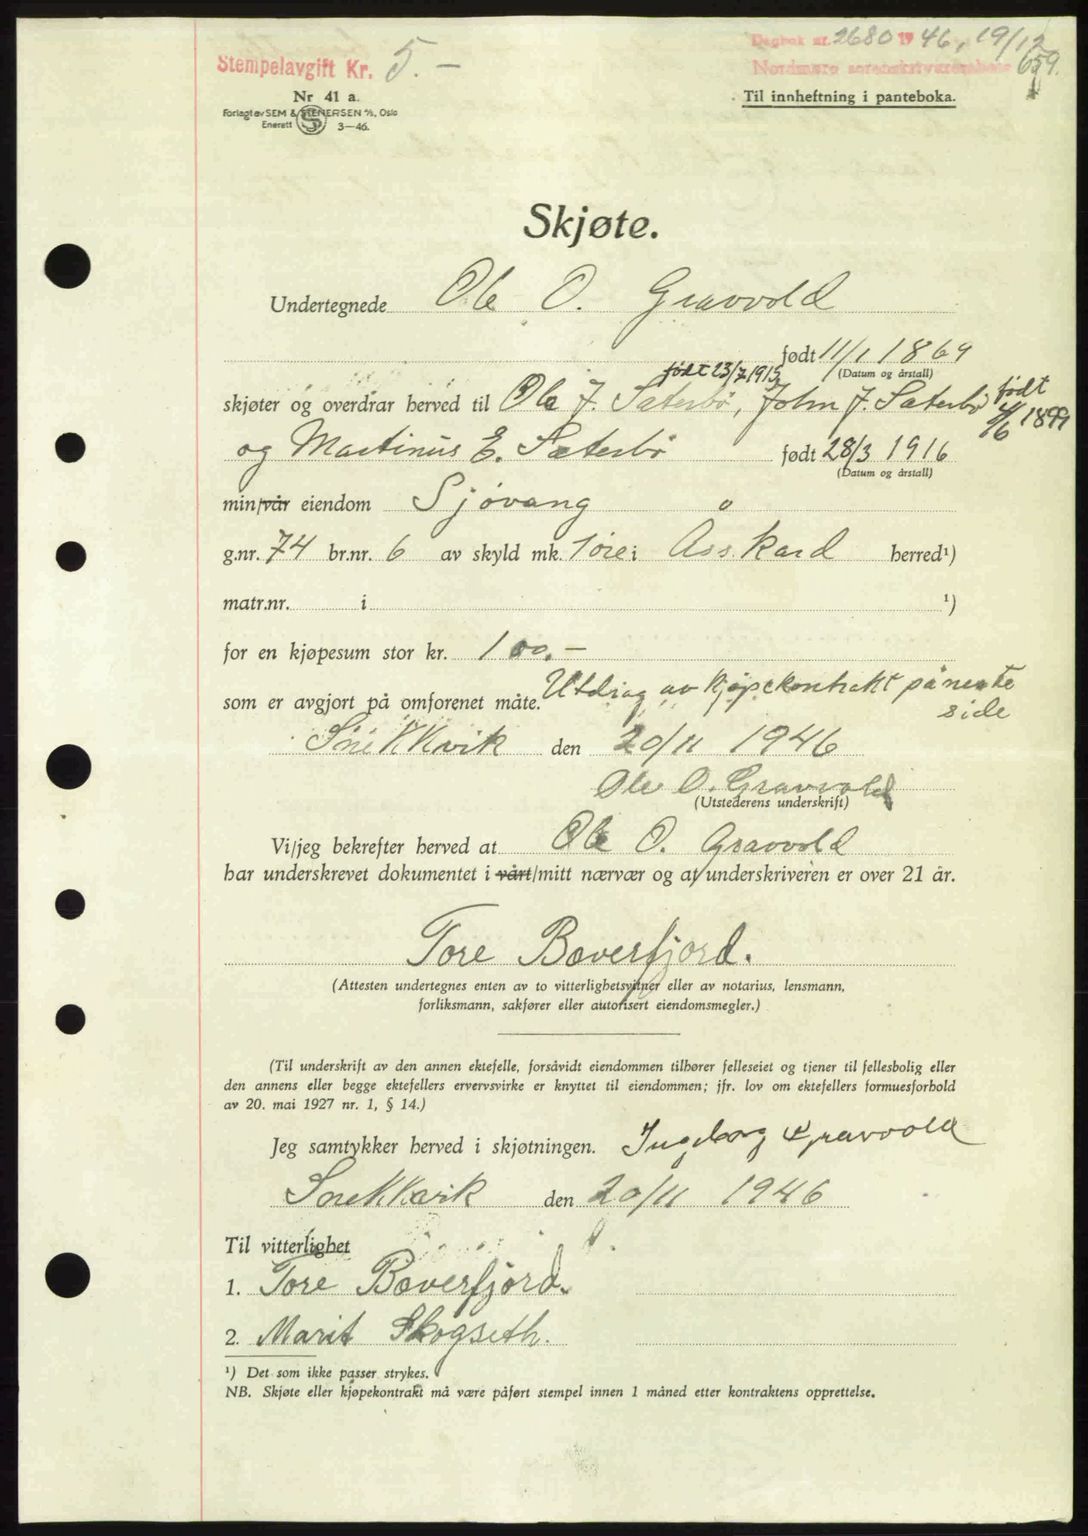 Stempelavgift Kr. 5.—
Dagbok nr. 2680 1946, 19/12
Nordmøre sorenskriverembete 659.
Nr 41 a.
Forlagt av SEM & STENERSEN A/S, Oslo
Enerett 3—46.
Til innheftning i panteboka.
Skjøte.
Undertegnede Ole O. Gravvold
født 11/1 1869
(Datum og årstall)
født 23/7 1915
født
4/6 1899
skjøter og overdrar herved til Ole J. Sæterbø, John J. Sæterbø
og Martinus E. Sæterbø født 28/3 1916
(Datum og årstall)
min/vår eiendom Sjøvang
g.nr. 74 br.nr. 6 av skyld mk. 1 øre i Åsskard herred¹)
matr.nr. i ¹)
for en kjøpesum stor kr. 100.—
som er avgjort på omforenet måte. Utdrag av kjøpekontrakt på neste
side
Snekkvik den 20/11 1946
Ole O. Gravvold
(Utstederens underskrift)
Vi/jeg bekrefter herved at Ole O. Gravvold
har underskrevet dokumentet i vårt/mitt nærvær og at underskriveren er over 21 år.
Tore Bæverfjord.
(Attesten undertegnes enten av to vitterlighetsvitner eller av notarius, lensmann,
forliksmann, sakfører eller autorisert eiendomsmegler.)
(Til underskrift av den annen ektefelle, forsåvidt eiendommen tilhører felleseiet og tjener til fellesbolig eller
den annens eller begge ektefellers ervervsvirke er knyttet til eiendommen; jfr. lov om ektefellers formuesforhold
av 20. mai 1927 nr. 1, § 14.)
Jeg samtykker herved i skjøtningen. Ingeborg Gravvold
Snekkvik den 20/11 1946
Til vitterlighet
1. Tore Bæverfjord.
2. Marit Skogseth.
¹) Det som ikke passer strykes.
NB. Skjøte eller kjøpekontrakt må være påført stempel innen 1 måned etter kontraktens opprettelse.